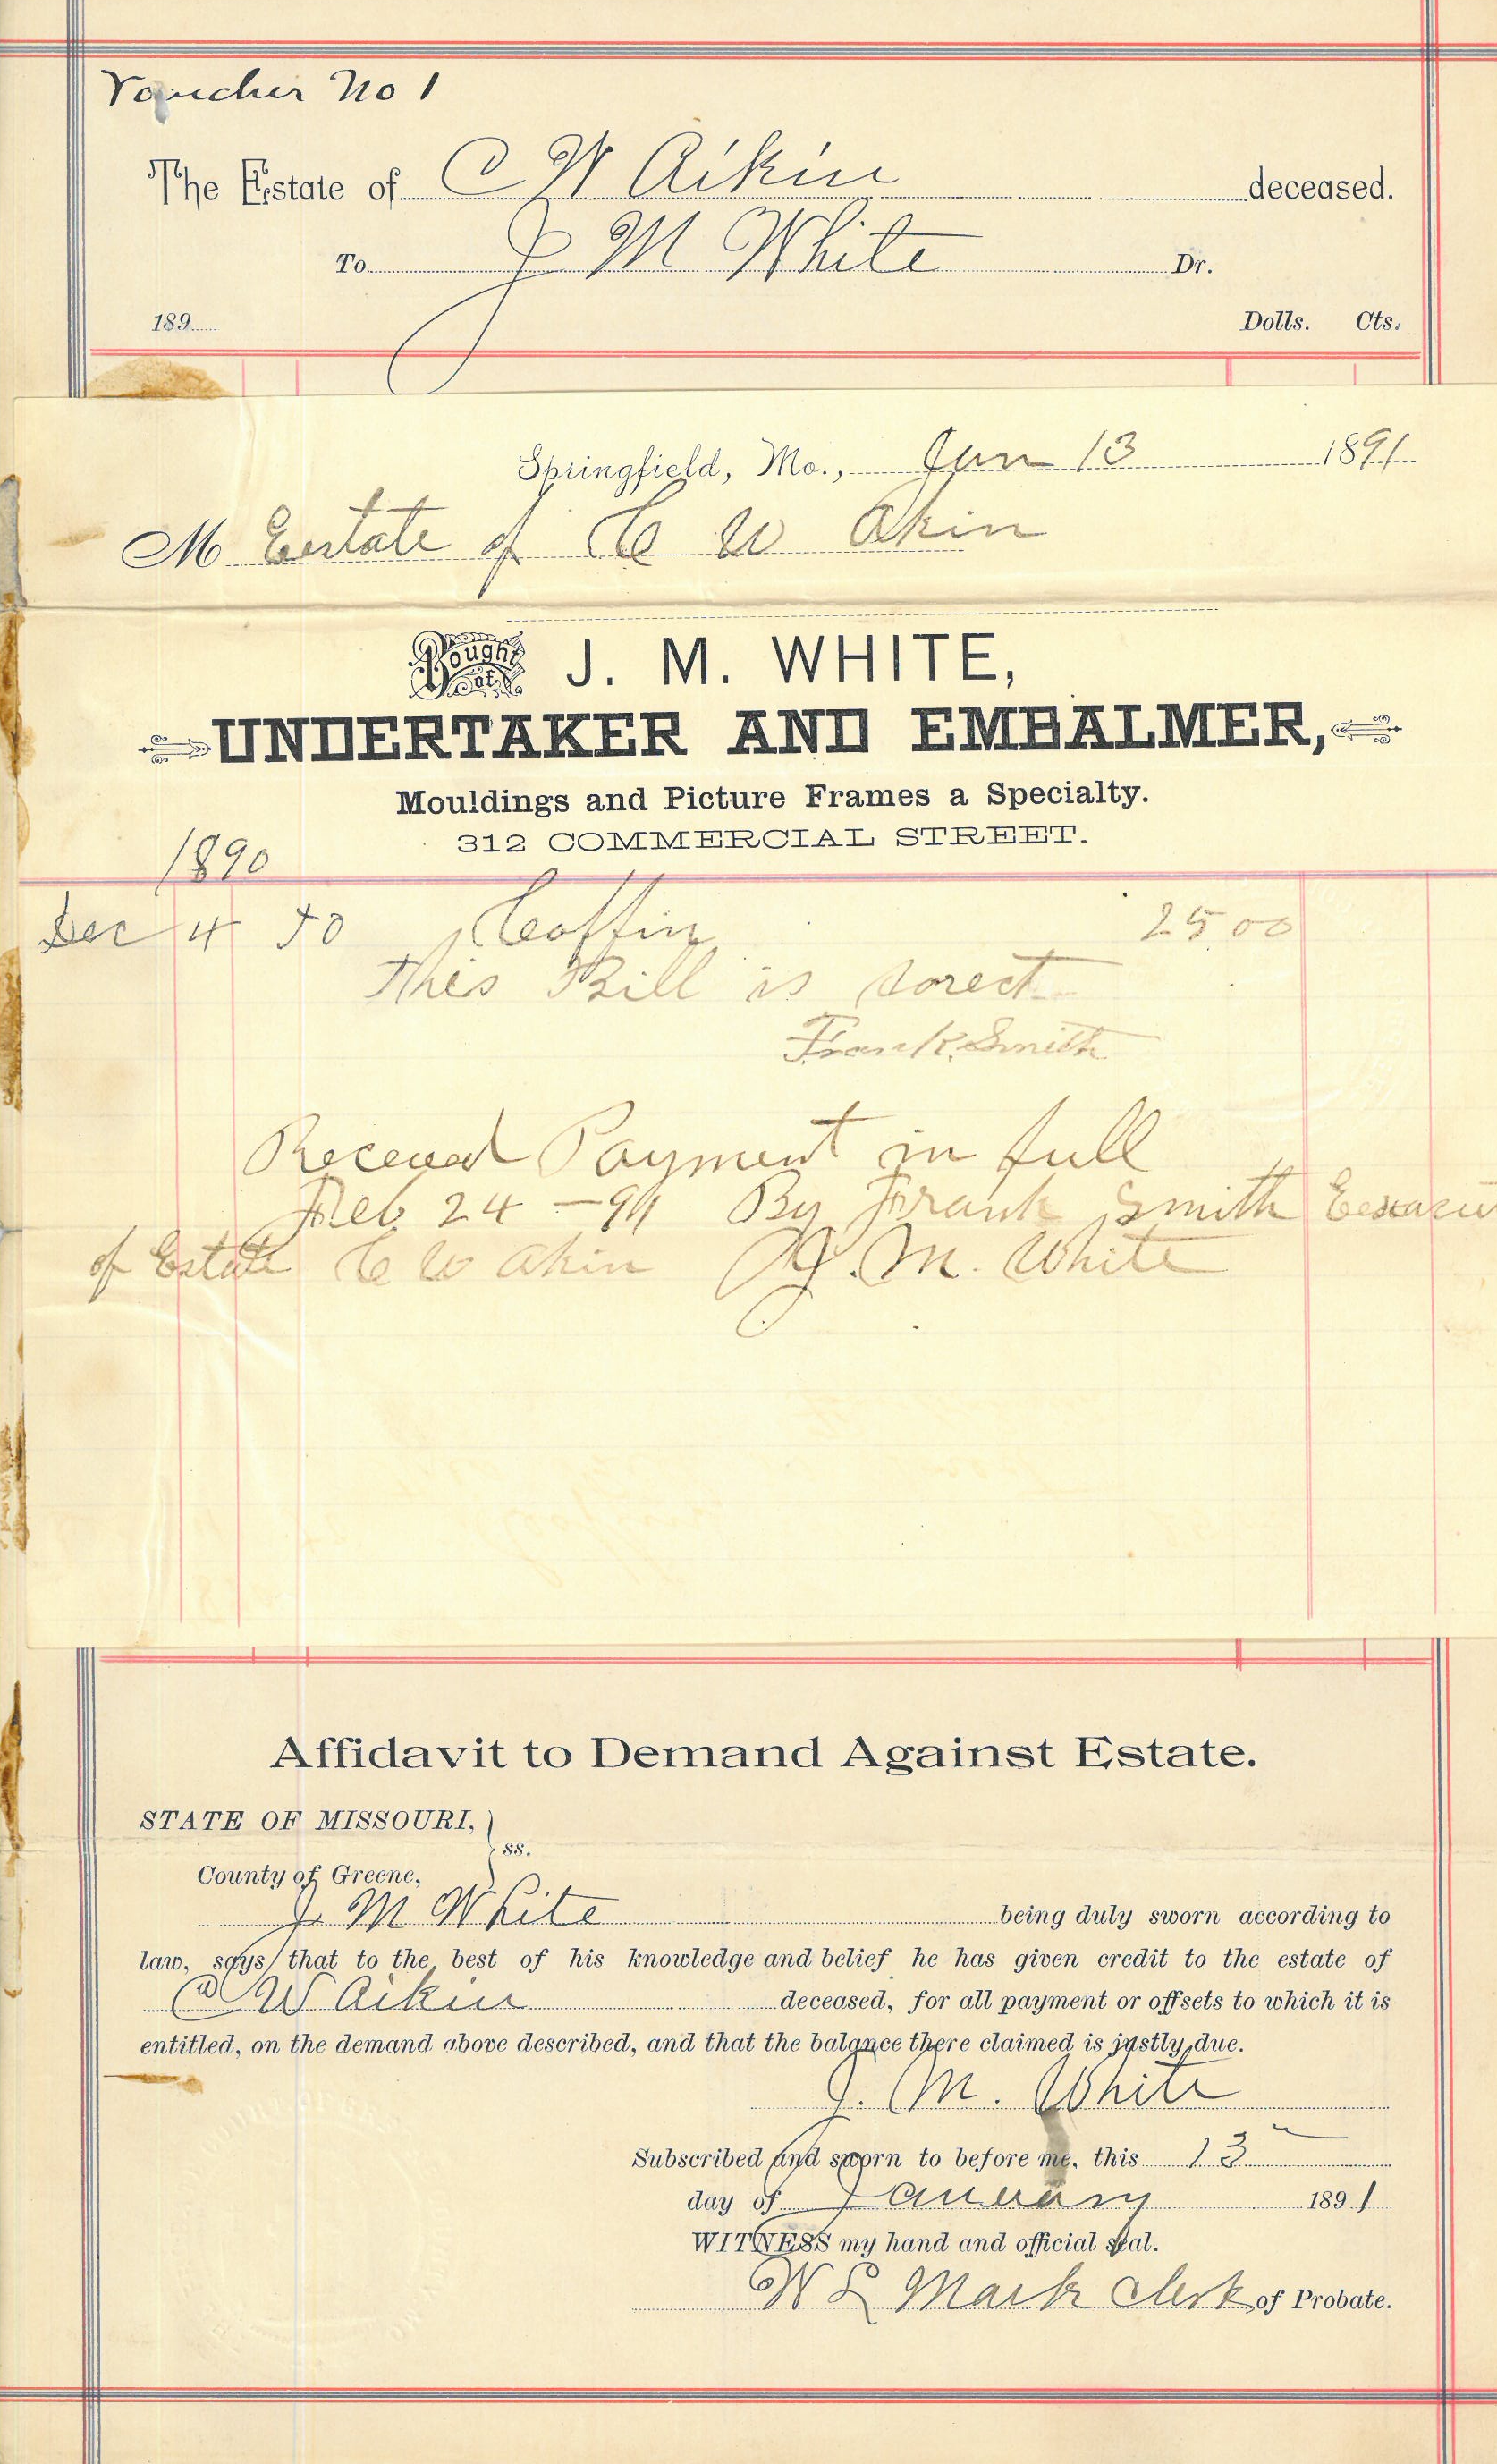 Voucher No 1
The Estate of C W Aikin deceased.
To J M White Dr.
189 Dolls. Cts.
Springfield, Mo., Jan 13 1891
M Eestate of C W Akin
Bought of J. M. WHITE,
UNDERTAKER AND EMBALMER,
Mouldings and Picture Frames a Specialty.
312 COMMERCIAL STREET.
1890
Dec 4 To Coffin 25 00
This Bill is corect
Frank Smith
Received Payment in full
Feb 24 - 91 By Frank Smith
of Estate C W Akin J. M. White
Affidavit to Demand Against Estate.
STATE OF MISSOURI, } ss.
County of Greene,
J M White being duly sworn according to
law, says that to the best of his knowledge and belief he has given credit to the estate of
C W Aikin deceased, for all payment or offsets to which it is
entitled, on the demand above described, and that the balance there claimed is justly due.
J. M. White
Subscribed and sworn to before me, this 13
day of January 1891
WITNESS my hand and official seal.
W L Mack Clerk of Probate.